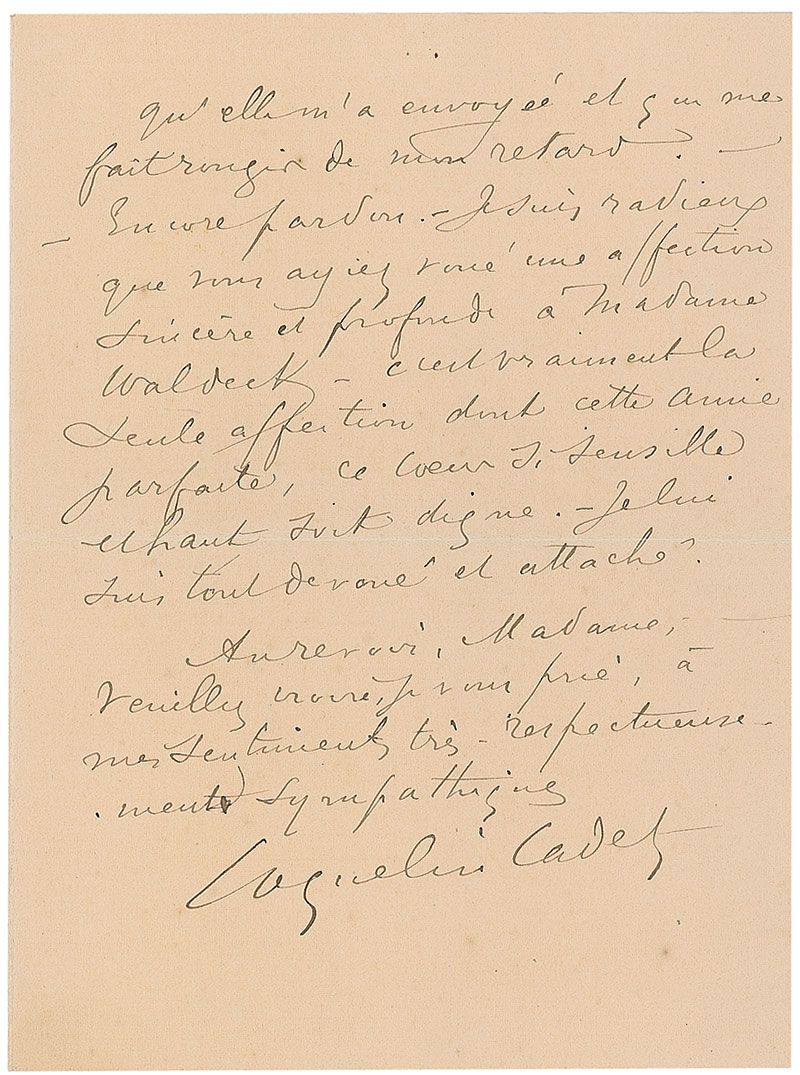 qu'elle m'a envoyéé et qui me
fait rougir de mon retard. —
— Encore pardon. – Je suis radieux
que vous ayiez voué une affection
sincère et profonde à Madame
Waldeck – c'est vraiment la
seule affection dont cette amie
parfaite, ce coeur si sensible
et haut soit digne. – Je lui
suis tout dévoué et attaché.
Au revoir, Madame, –
Veuillez croire, je vous prie, à
mes sentiments très-respectueuse-
ment sympathiques
Coquelin Cadet